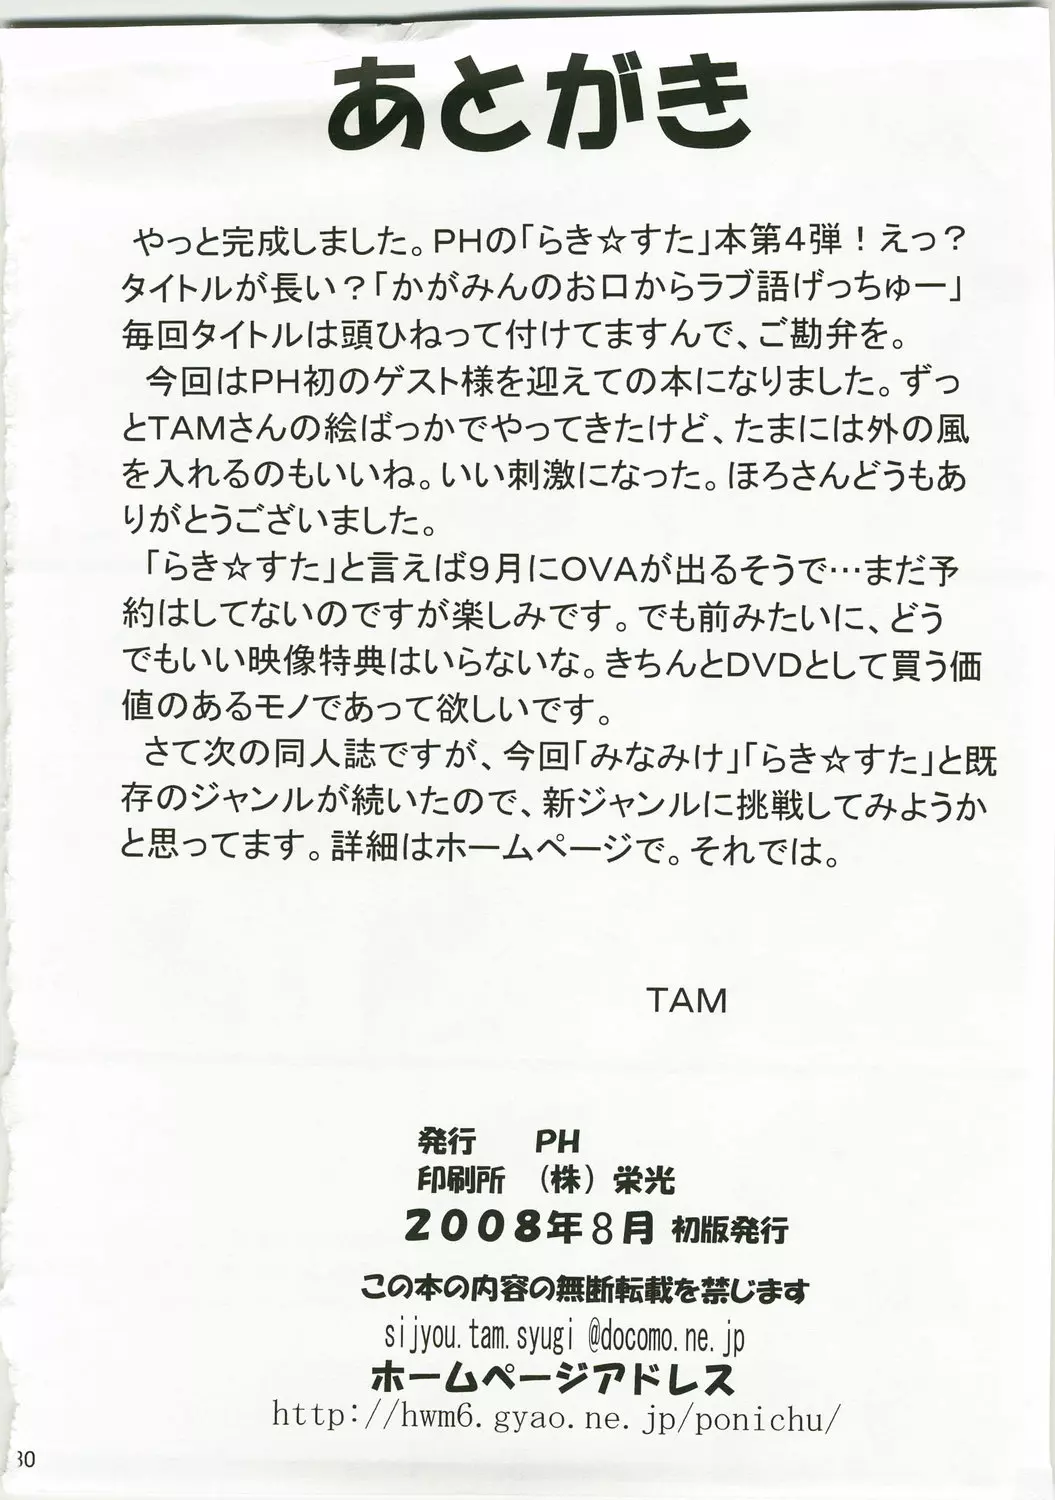 あとがき
やっと完成しました。PHの「らき☆すた」本第4弾！えっ？
タイトルが長い？「かがみんのお口からラブ語げっちゅー」
毎回タイトルは頭ひねって付けてますんで、ご勘弁を。
今回はPH初のゲスト様を迎えての本になりました。ずっ
とTAMさんの絵ばっかでやってきたけど、たまには外の風
を入れるのもいいね。いい刺激になった。ほろさんどうもあ
りがとうございました。
「らき☆すた」と言えば9月にOVAが出るそうで…まだ予
約はしてないのですが楽しみです。でも前みたいに、どう
でもいい映像特典はいらないな。きちんとDVDとして買う価
値のあるモノであって欲しいです。
さて次の同人誌ですが、今回「みなみけ」「らき☆すた」と既
存のジャンルが続いたので、新ジャンルに挑戦してみようか
と思ってます。詳細はホームページで。それでは。
TAM
発行 PH
印刷所 （株）栄光
2008年8月 初版発行
この本の内容の無断転載を禁じます
sijyou.tam.syugi@docomo.ne.jp
ホームページアドレス
http://hwm6.gyao.ne.jp/ponichu/
30